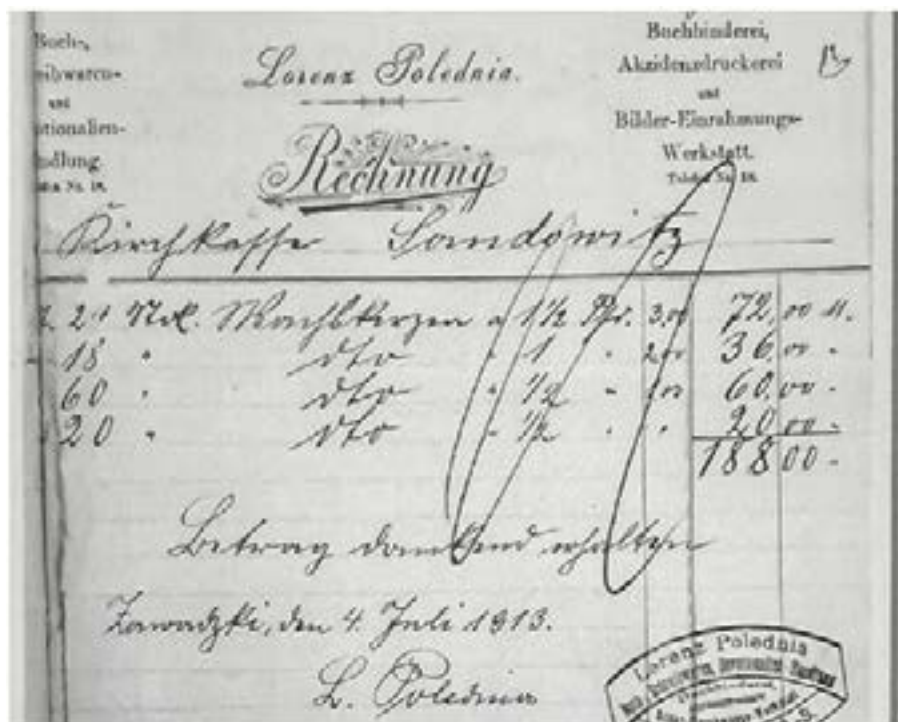 Buch-,
eibwaren-
und
otionalien-
ndlung.
No. 18.
Lorenz Polednia.
Rechnung
Buchbinderei,
Akzidenzdruckerei
und
Bilder-Einrahmungs-
Werkstatt.
Telefon No. 18.
Kirchkasse Sandowitz
24 Stck. Wachskerzen a 1½ Pfd. 3,00 72,00 M.
18 " dto " 1 " 2,00 36,00 "
60 " dto " ½ " 1,00 60,00 "
20 " dto " ½ " " 20,00 "
188 00 "
Betrag dankend erhalten
Zawadzki, den 4. Juli 1913.
L. Polednia
Lorenz Polednia